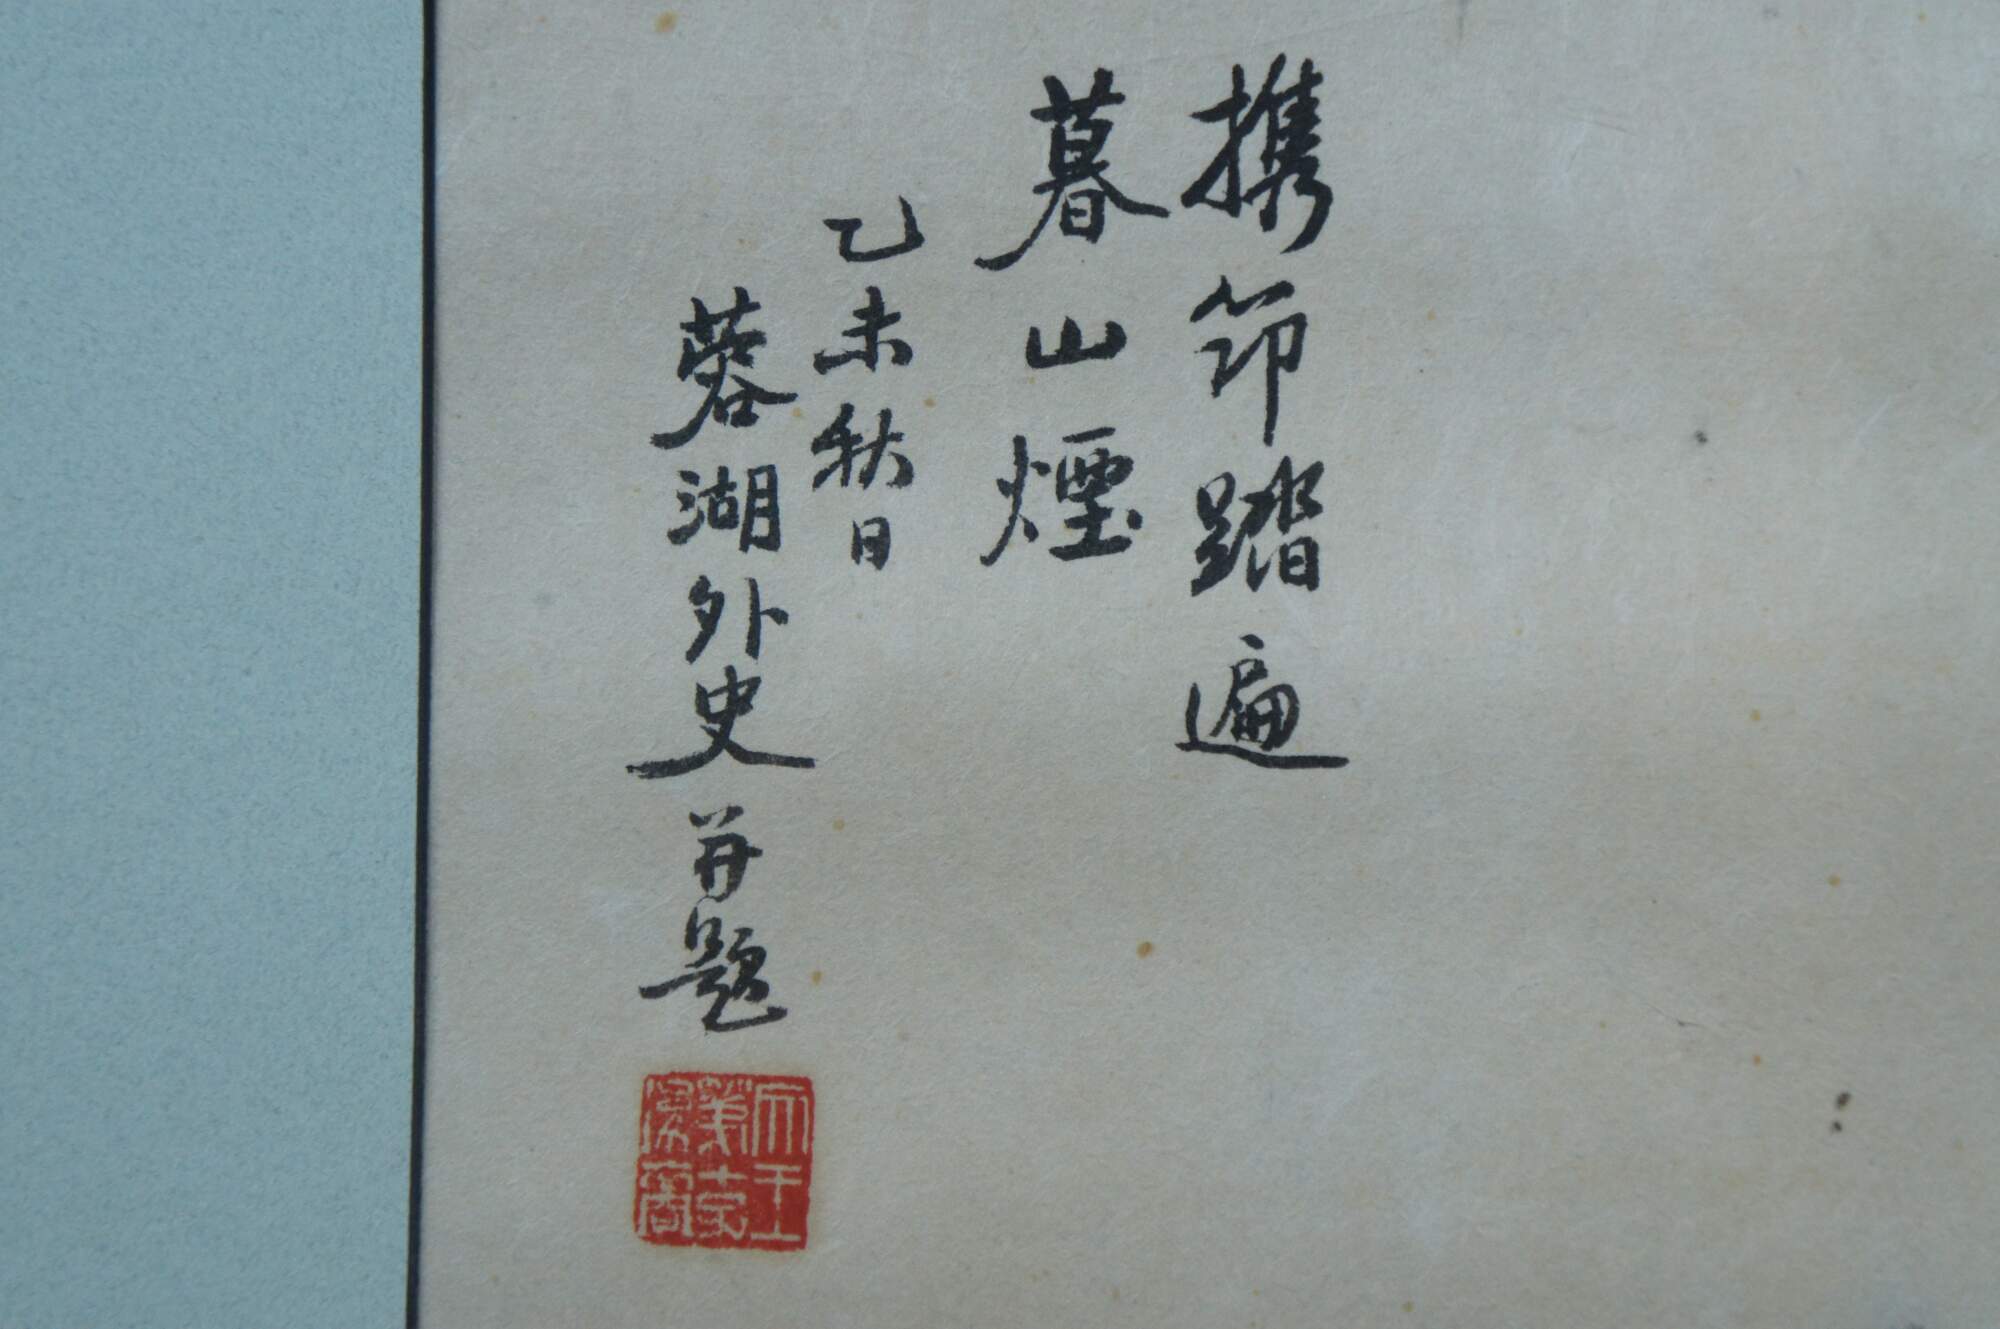 携筇踏遍
暮山煙
乙未秋日
蓉湖外史并題